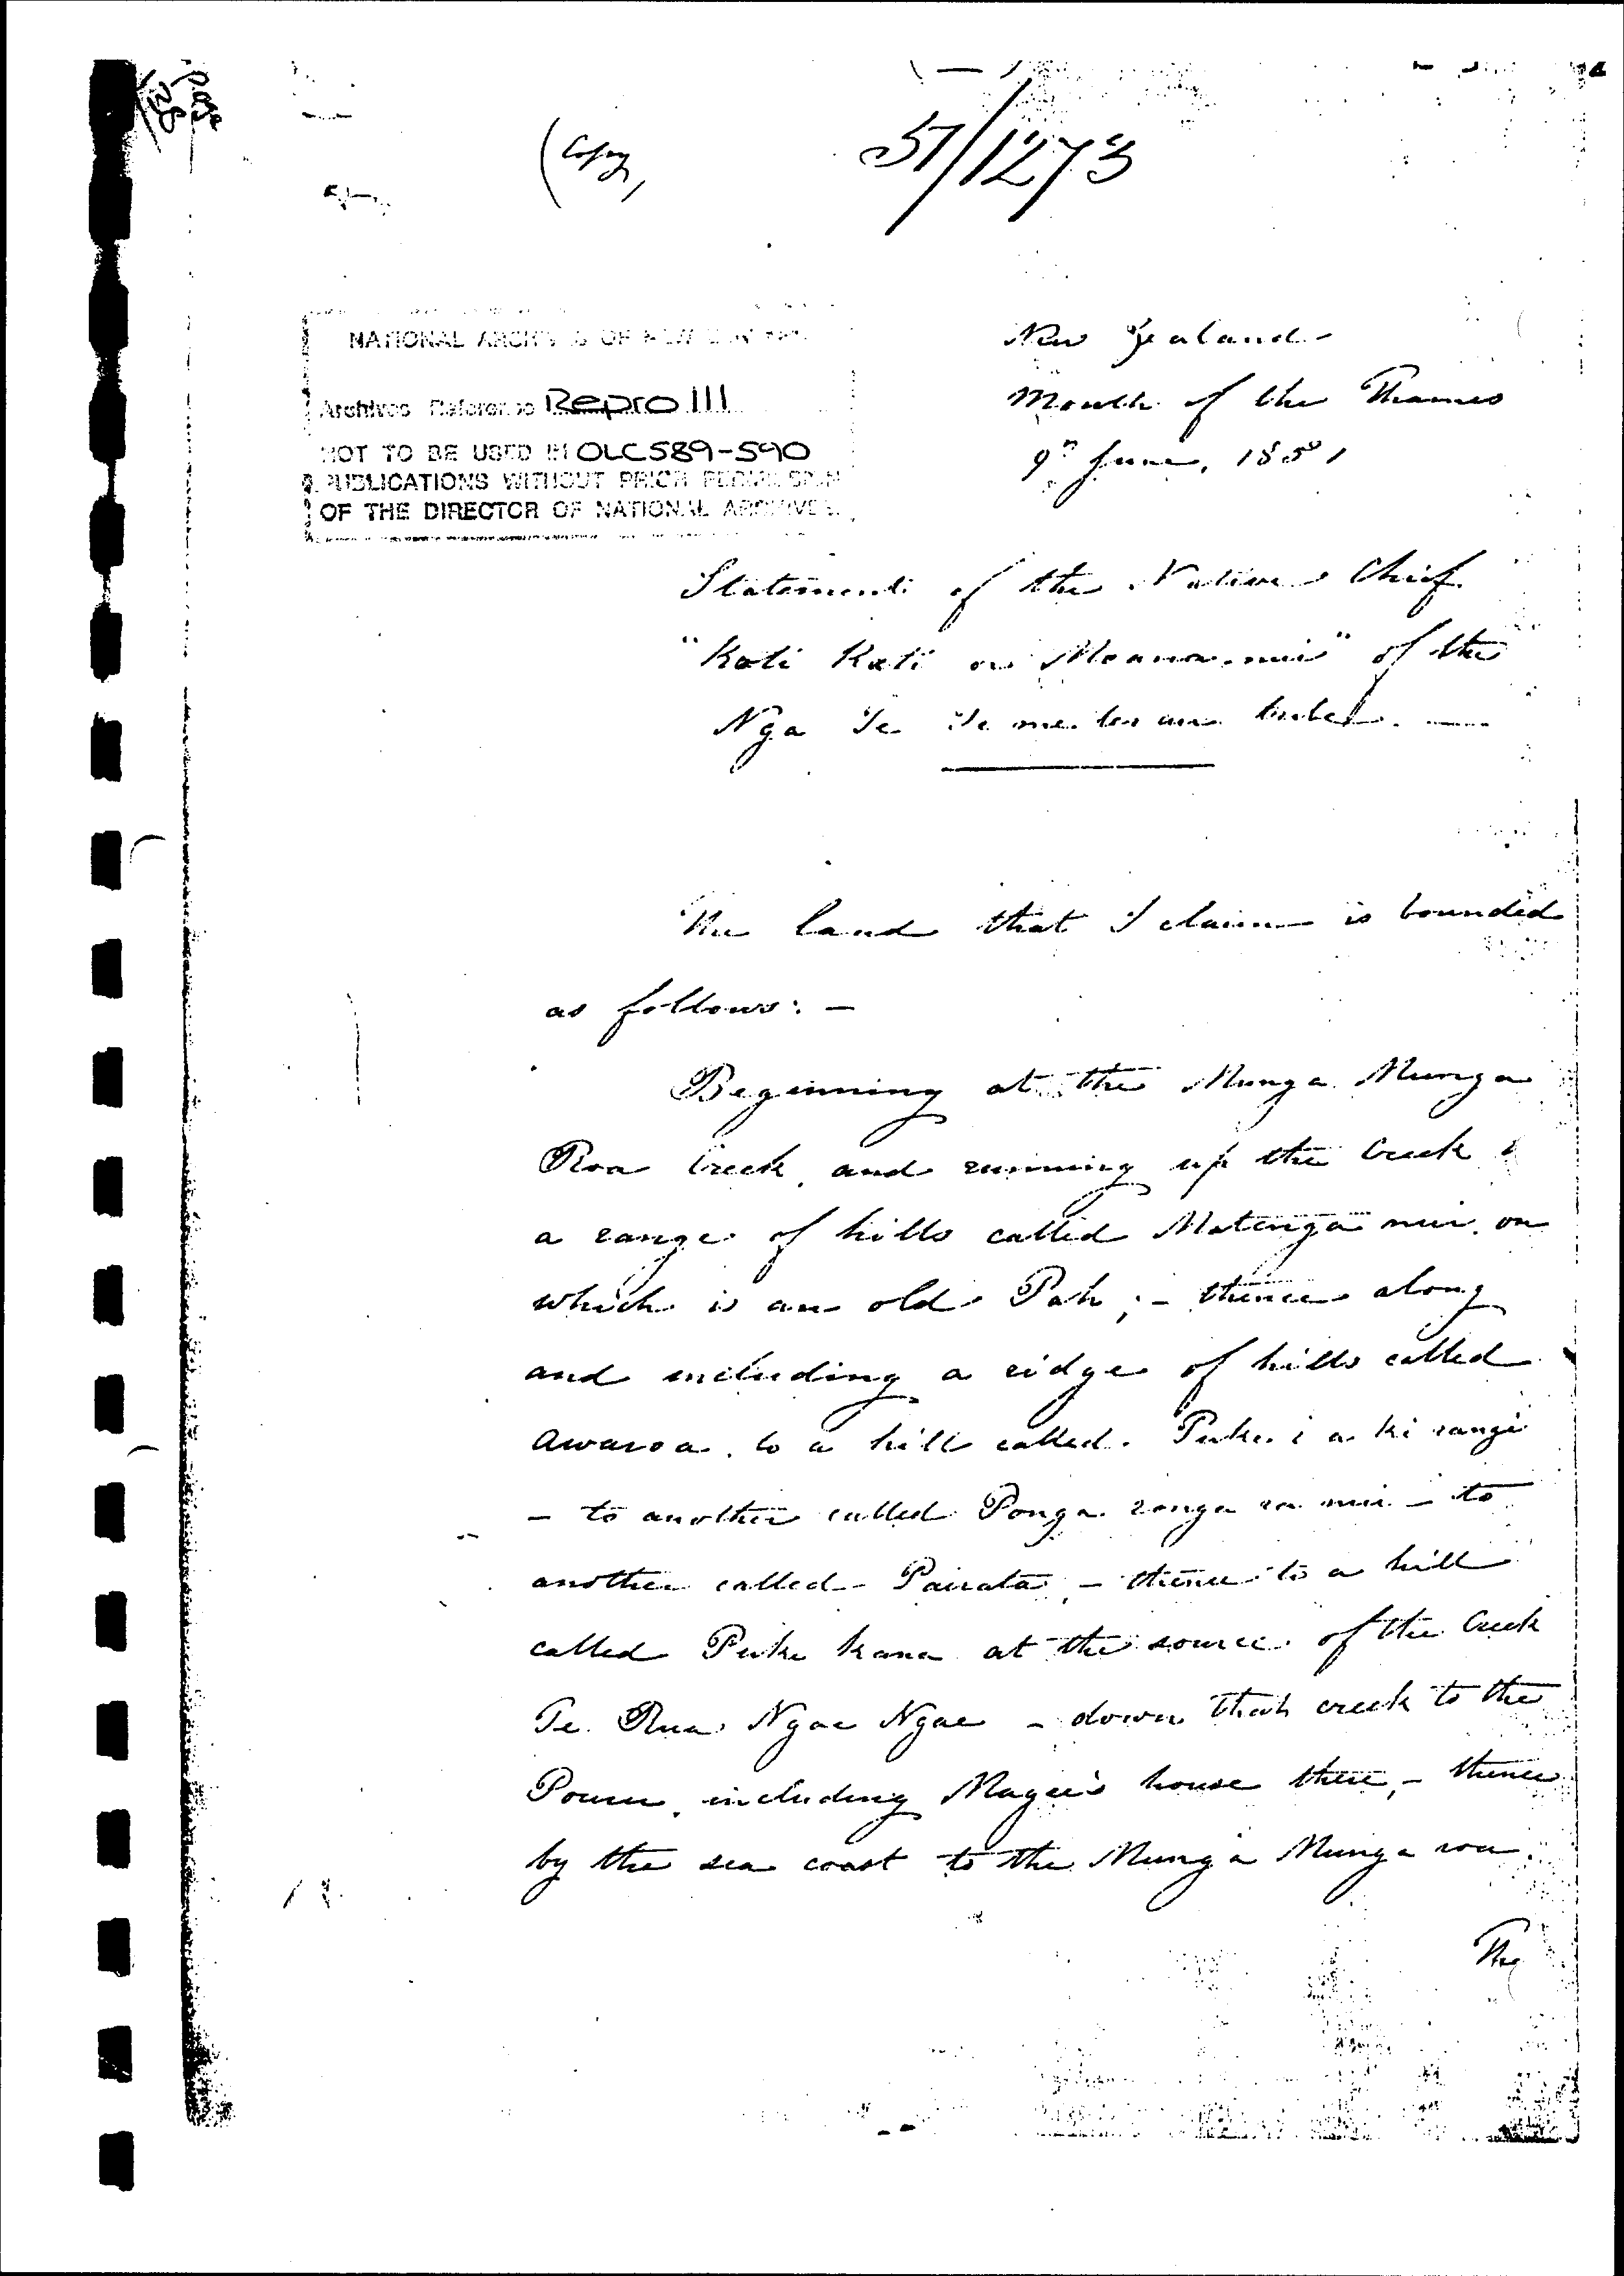 (Copy)
51/1273
NATIONAL ARCHIVES OF NEW ZEALAND
Archives Reference Repro 111
NOT TO BE USED IN OLC 589-590
PUBLICATIONS WITHOUT PRIOR PERMISSION
OF THE DIRECTOR OF NATIONAL ARCHIVES
New Zealand
Mouth of the Thames
9th June, 1851
Statement of the Native Chief
"Kati Kati or Moananui" of the
Nga Te tribe. —
The land that I claim is bounded
as follows: —
Beginning at the Munga Munga
Roa Creek and running up the Creek
a range of hills called Matenga nui on
which is an old Pah; — thence along
and including a ridge of hills called
Awaroa to a hill called Puke i a ki rangi
— to another called Ponga ronga ra nui — to
another called Pairata, — thence to a hill
called Puke kana at the source of the Creek
Te Rua Ngae Ngae — down that creek to the
including Magee's house there, — thence
by the sea coast to the Munga Munga roa.
The